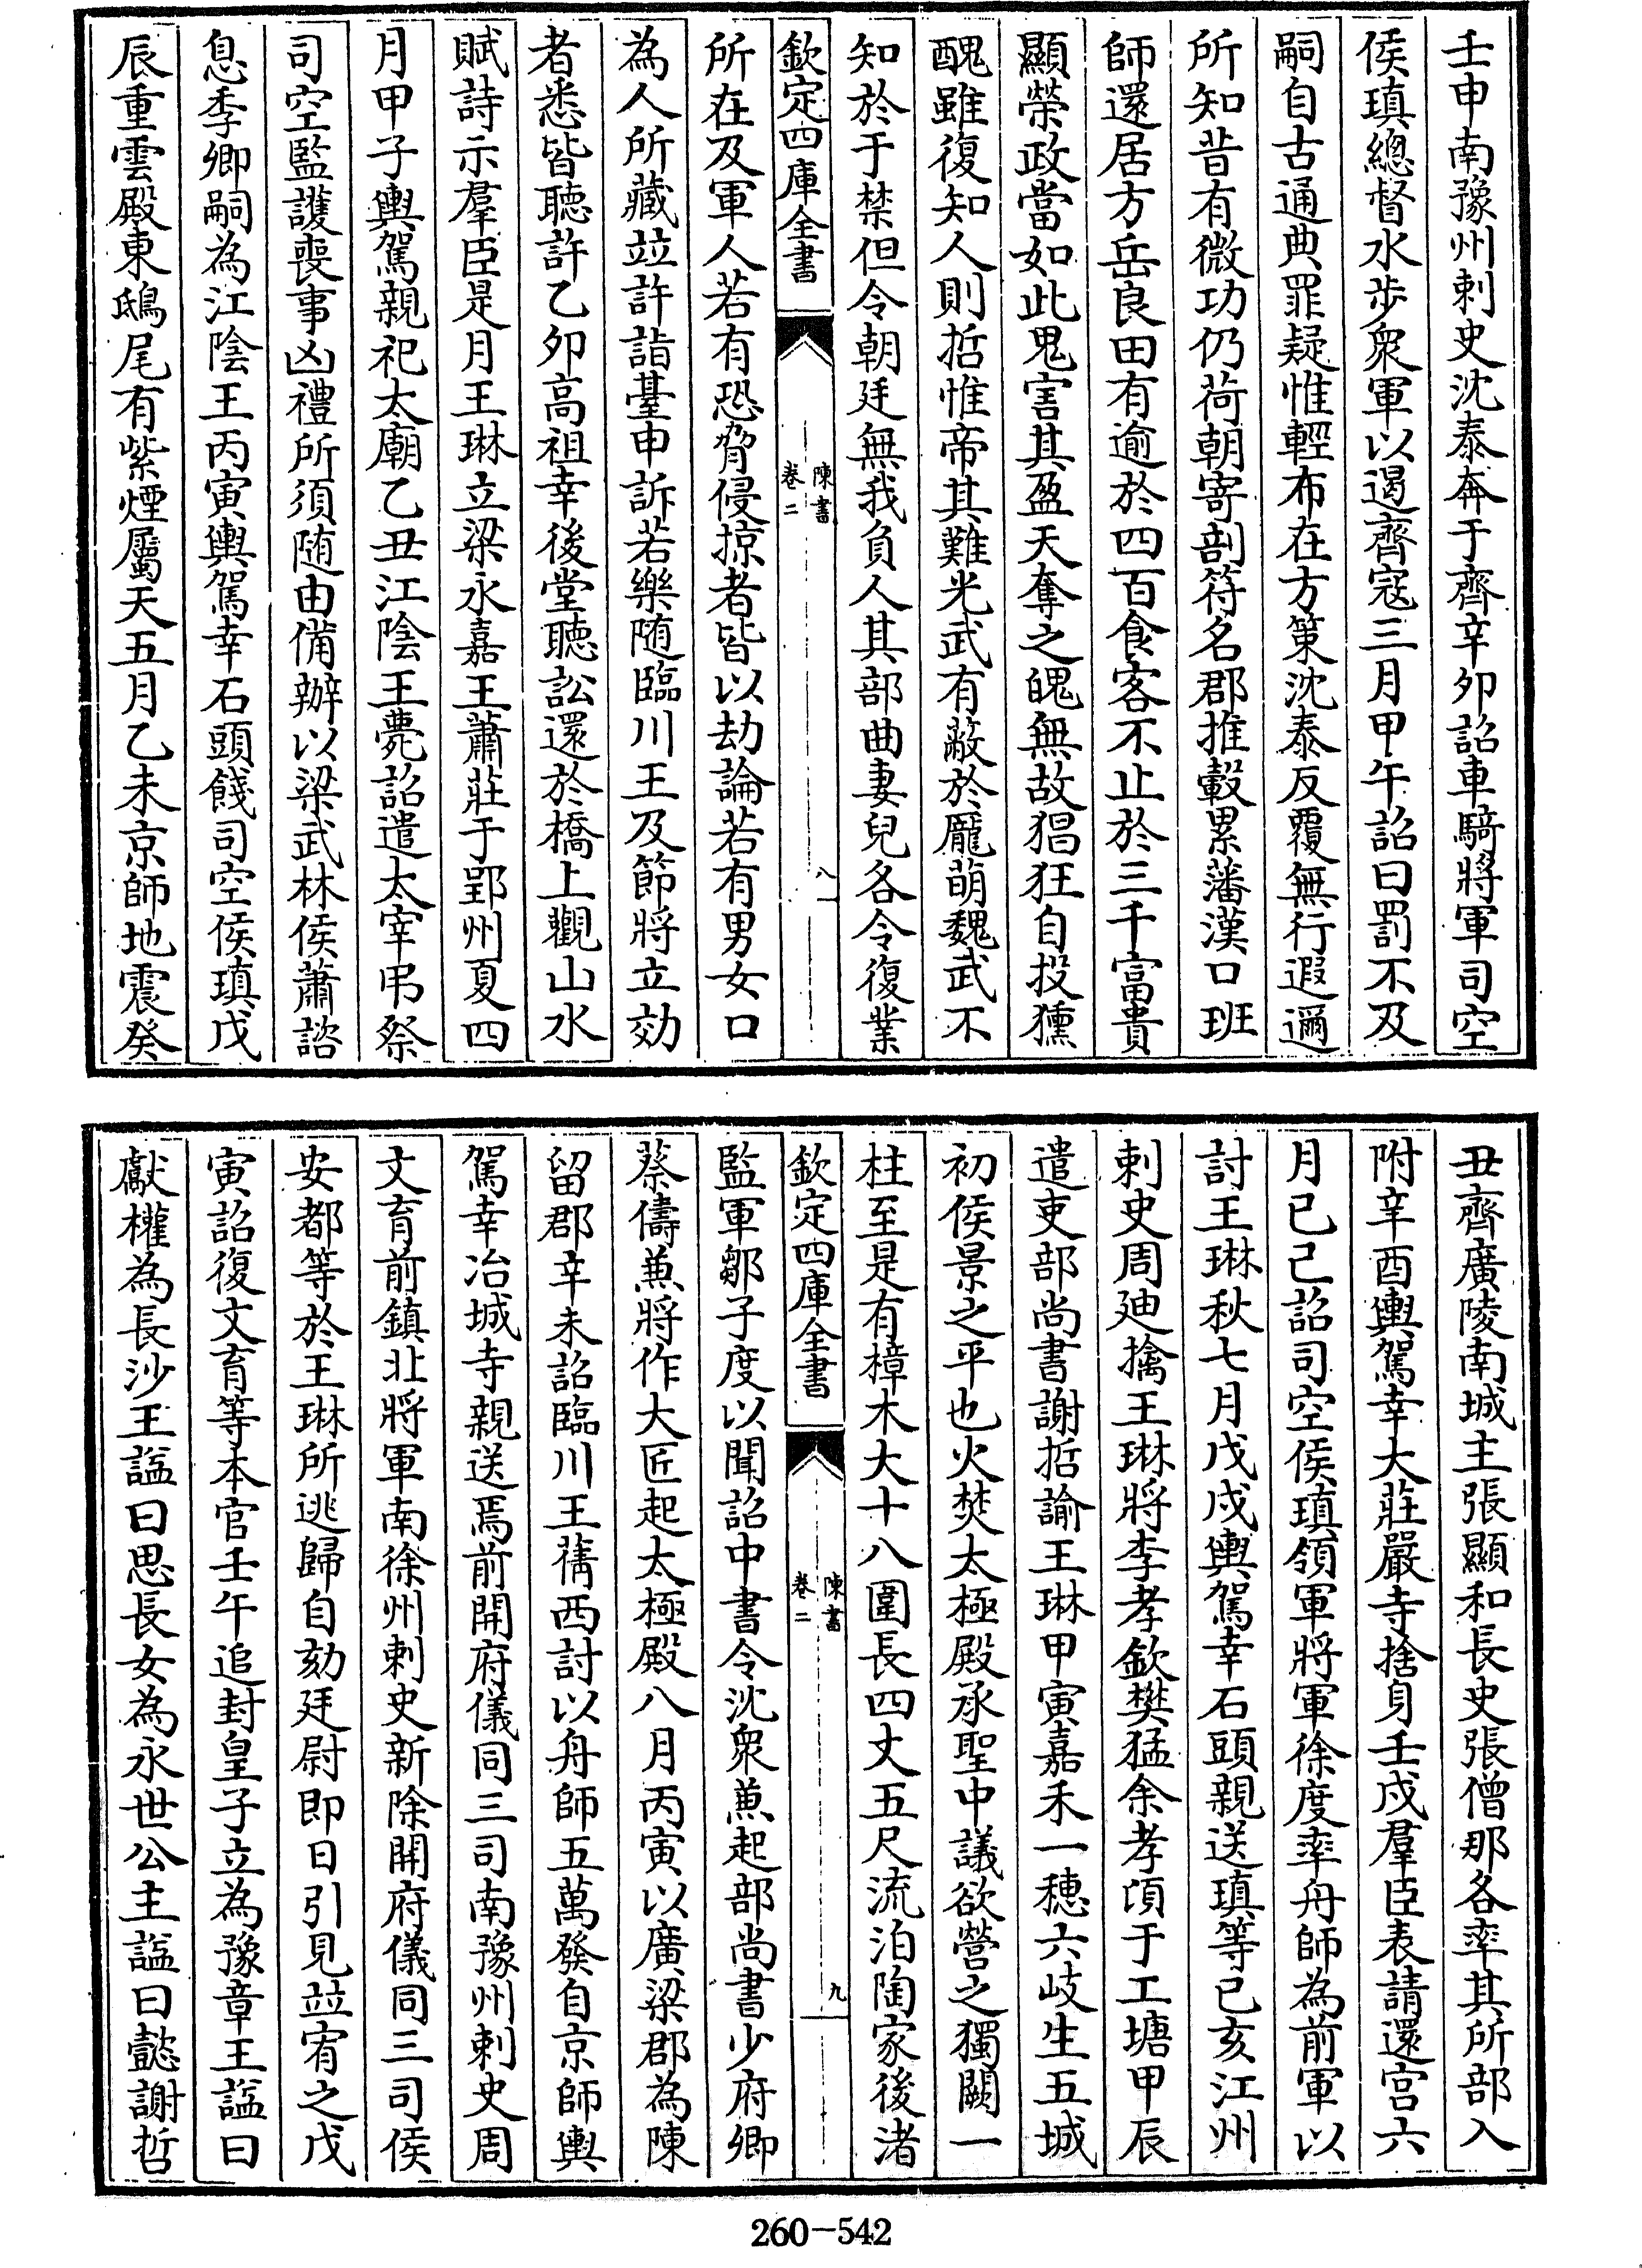 壬申南豫州刺史沈泰奔于齊辛卯詔車騎將軍司空
侯瑱總督水步衆軍以遏齊寇三月甲午詔曰罰不及
嗣自古通典罪疑惟輕布在方策沈泰反覆無行遐邇
所知昔有微功仍荷朝寄剖符名郡推轂累藩漢口班
師還居方岳良田有逾於四百食客不止於三千富貴
顯榮政當如此鬼害其盈天奪之魄無故猖狂自投獯
醜雖復知人則哲惟帝其難光武有蔽於龐萌魏武不
知於于禁但令朝廷無我負人其部曲妻兒各令復業
欽定四庫全書
陳書
卷二
八
所在及軍人若有恐脅侵掠者皆以劫論若有男女口
為人所藏竝許詣臺申訴若樂随臨川王及節將立効
者悉皆聽許乙夘高祖幸後堂聽訟還於橋上觀山水
賦詩示羣臣是月王琳立梁永嘉王蕭莊于郢州夏四
月甲子輿駕親祀太廟乙丑江陰王薨詔遣太宰弔祭
司空監護喪事凶禮所須随由備辦以梁武林侯蕭諮
息季卿嗣為江陰王丙寅輿駕幸石頭餞司空侯瑱戊
辰重雲殿東鴟尾有紫煙屬天五月乙未京師地震癸
丑齊廣陵南城主張顯和長史張僧那各率其所部入
附辛酉輿駕幸大莊嚴寺捨身壬戌羣臣表請還宫六
月己巳詔司空侯瑱領軍將軍徐度率舟師為前軍以
討王琳秋七月戊戌輿駕幸石頭親送瑱等己亥江州
刺史周廸擒王琳將李孝欽樊猛余孝頃于工塘甲辰
遣吏部尚書謝哲諭王琳甲寅嘉禾一穗六岐生五城
初侯景之平也火焚太極殿承聖中議欲營之獨闕一
柱至是有樟木大十八圍長四丈五尺流泊陶家後渚
欽定四庫全書
陳書
卷二
九
監軍鄒子度以聞詔中書令沈衆兼起部尚書少府卿
蔡儔兼將作大匠起太極殿八月丙寅以廣梁郡為陳
留郡辛未詔臨川王蒨西討以舟師五萬發自京師輿
駕幸冶城寺親送焉前開府儀同三司南豫州刺史周
文育前鎮北將軍南徐州刺史新除開府儀同三司侯
安都等於王琳所逃歸自劾廷尉即日引見竝宥之戊
寅詔復文育等本官壬午追封皇子立為豫章王諡曰
獻權為長沙王諡曰思長女為永世公主諡曰懿謝哲
260-542